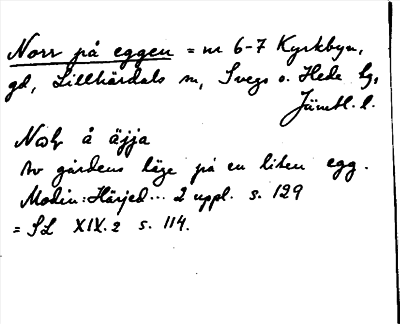 Norr på eggen = nr 6-7 Kyrkbyn,
gd, Lillhärdals sn, Svegs o. Hede tg,
Jämtl. l.
å äjja
Av gårdens läge på en liten egg.
Modin: Härjed... 2 uppl. s. 129
= SL XIX.2 s. 114.